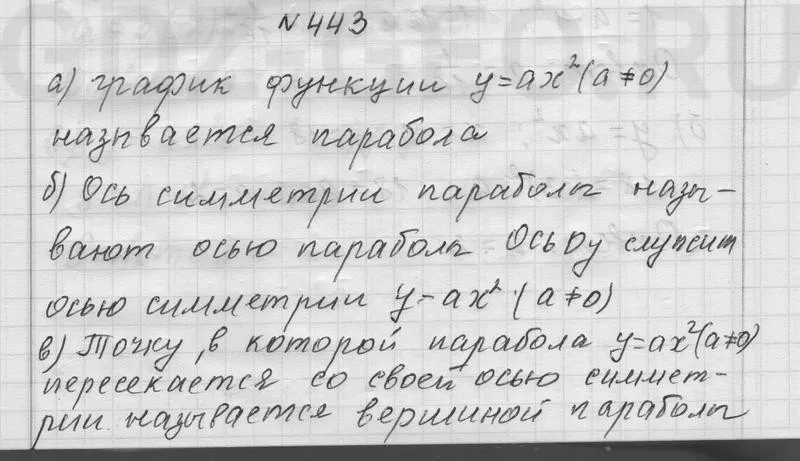 GDZ-GEO.RU
№443
а) график функции y=ax²(a≠0)
называется парабола
б) Ось симметрии параболы назы-
вают осью параболы Ось Oy служит
осью симметрии y=ax² (a≠0)
в) Точку, в которой парабола y=ax²(a≠0)
пересекается со своей осью симмет-
рии называется вершиной параболы